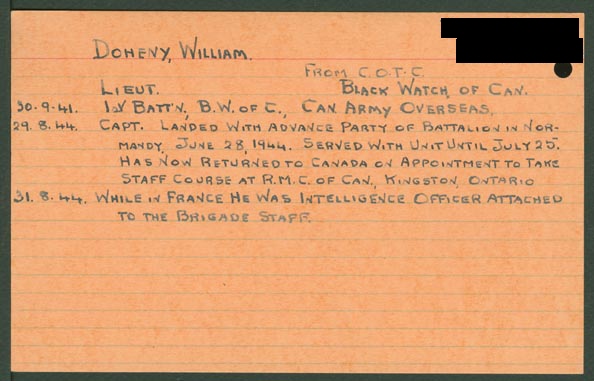 DOHENY, WILLIAM.
FROM C.O.T.C.
LIEUT. BLACK WATCH OF CAN.
30.9.41. 1st BATT'N, B.W. OF C., CAN ARMY OVERSEAS.
29.8.44. CAPT. LANDED WITH ADVANCE PARTY OF BATTALION IN NOR-
MANDY, JUNE 28, 1944. SERVED WITH UNIT UNTIL JULY 25.
HAS NOW RETURNED TO CANADA ON APPOINTMENT TO TAKE
STAFF COURSE AT R.M.C. OF CAN., KINGSTON, ONTARIO
31.8.44. WHILE IN FRANCE HE WAS INTELLIGENCE OFFICER ATTACHED
TO THE BRIGADE STAFF.